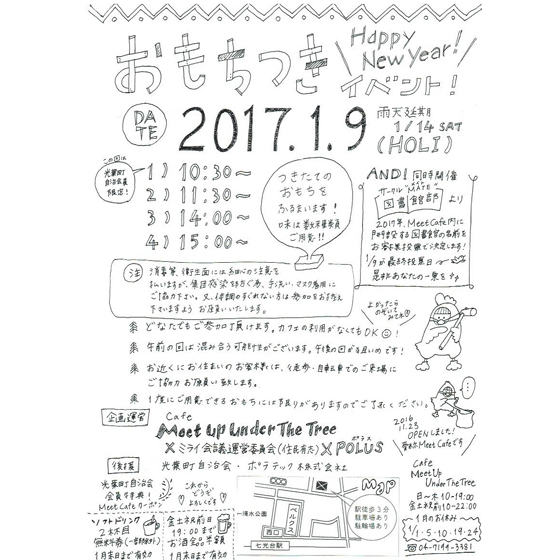 おもちつき
イベント!
Happy
New Year!
DATE
2017.1.9
雨天延期
1/14 SAT
(HOLI)
この回は
光葉町
自治会員
限定!
1) 10:30~
2) 11:30~
3) 14:00~
4) 15:00~
つきたての
おもちを
ふるまいます!
ご用意!!
AND! 同時開催
サークル"MATE"
図書館部 より
2017年、Meet Cafe内に
開設する図書館の名前を
お客様投票で決定します!
1/9が最終投票日
是非あなたの一票を
よかったら
のぞいて
みてネ!
注
消毒等、衛生面には細心の注意を
払いますが、集団感染を防ぐ為、手洗い、マスク着用に
ご協力下さい。又、体調のすぐれない方は参加をお控え
下さいますよう お願いいたします。
どなたでもご参加頂けます。カフェの利用がなくてもOK!
午前の回は混み合う可能性がございます。午後の回がお狙いめです!
お近くにお住まいの お客様は、徒歩・自転車でのご来場に
ご協力 お願い致します。
1度にご用意できるおもちには限りがありますのでご了承ください。
企画運営
Cafe
Meet Up Under The Tree
×ミライ会議運営委員会(住民有志)×POLUS
ポラス
後援
光葉町自治会・ポラテック株式会社
2016
11.23
OPENしました!
Meet Cafeです
Cafe
Meet Up
Under The Tree
日~木 10-19:00
金土祝前 10-22:00
1月のお休み
1/1・5・10・19・24
04-7194-3381
光葉町自治会
会員様特典!
Meet Cafeクーポン
これから
どうぞ
よろしくです
ソフトドリンク
2杯目
無料券
1月末日まで有効
金土祝前日
19:00まで
お酒全品半額
1月末日まで有効
MAP
清水公園
ベルクス
西口
七光台駅
駅徒歩3分
駐車場あり
駐輪場あり